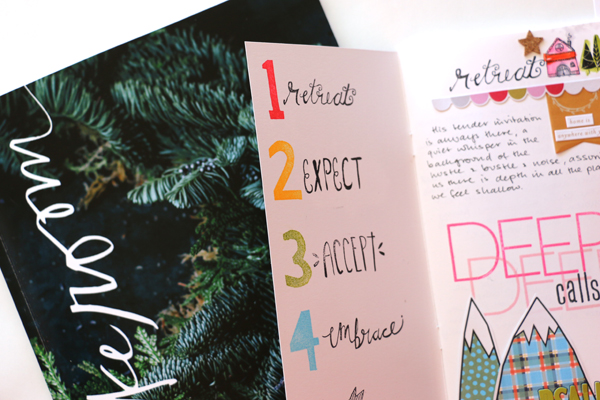 1 retreat
2 EXPECT
3 ACCEPT
4 embrace
retreat
His tender invitation
is always there, a
quiet whisper in the
background of the
hustle & bustle & noise,
us there is depth in all the
we feel shallow.
DEEP
calls